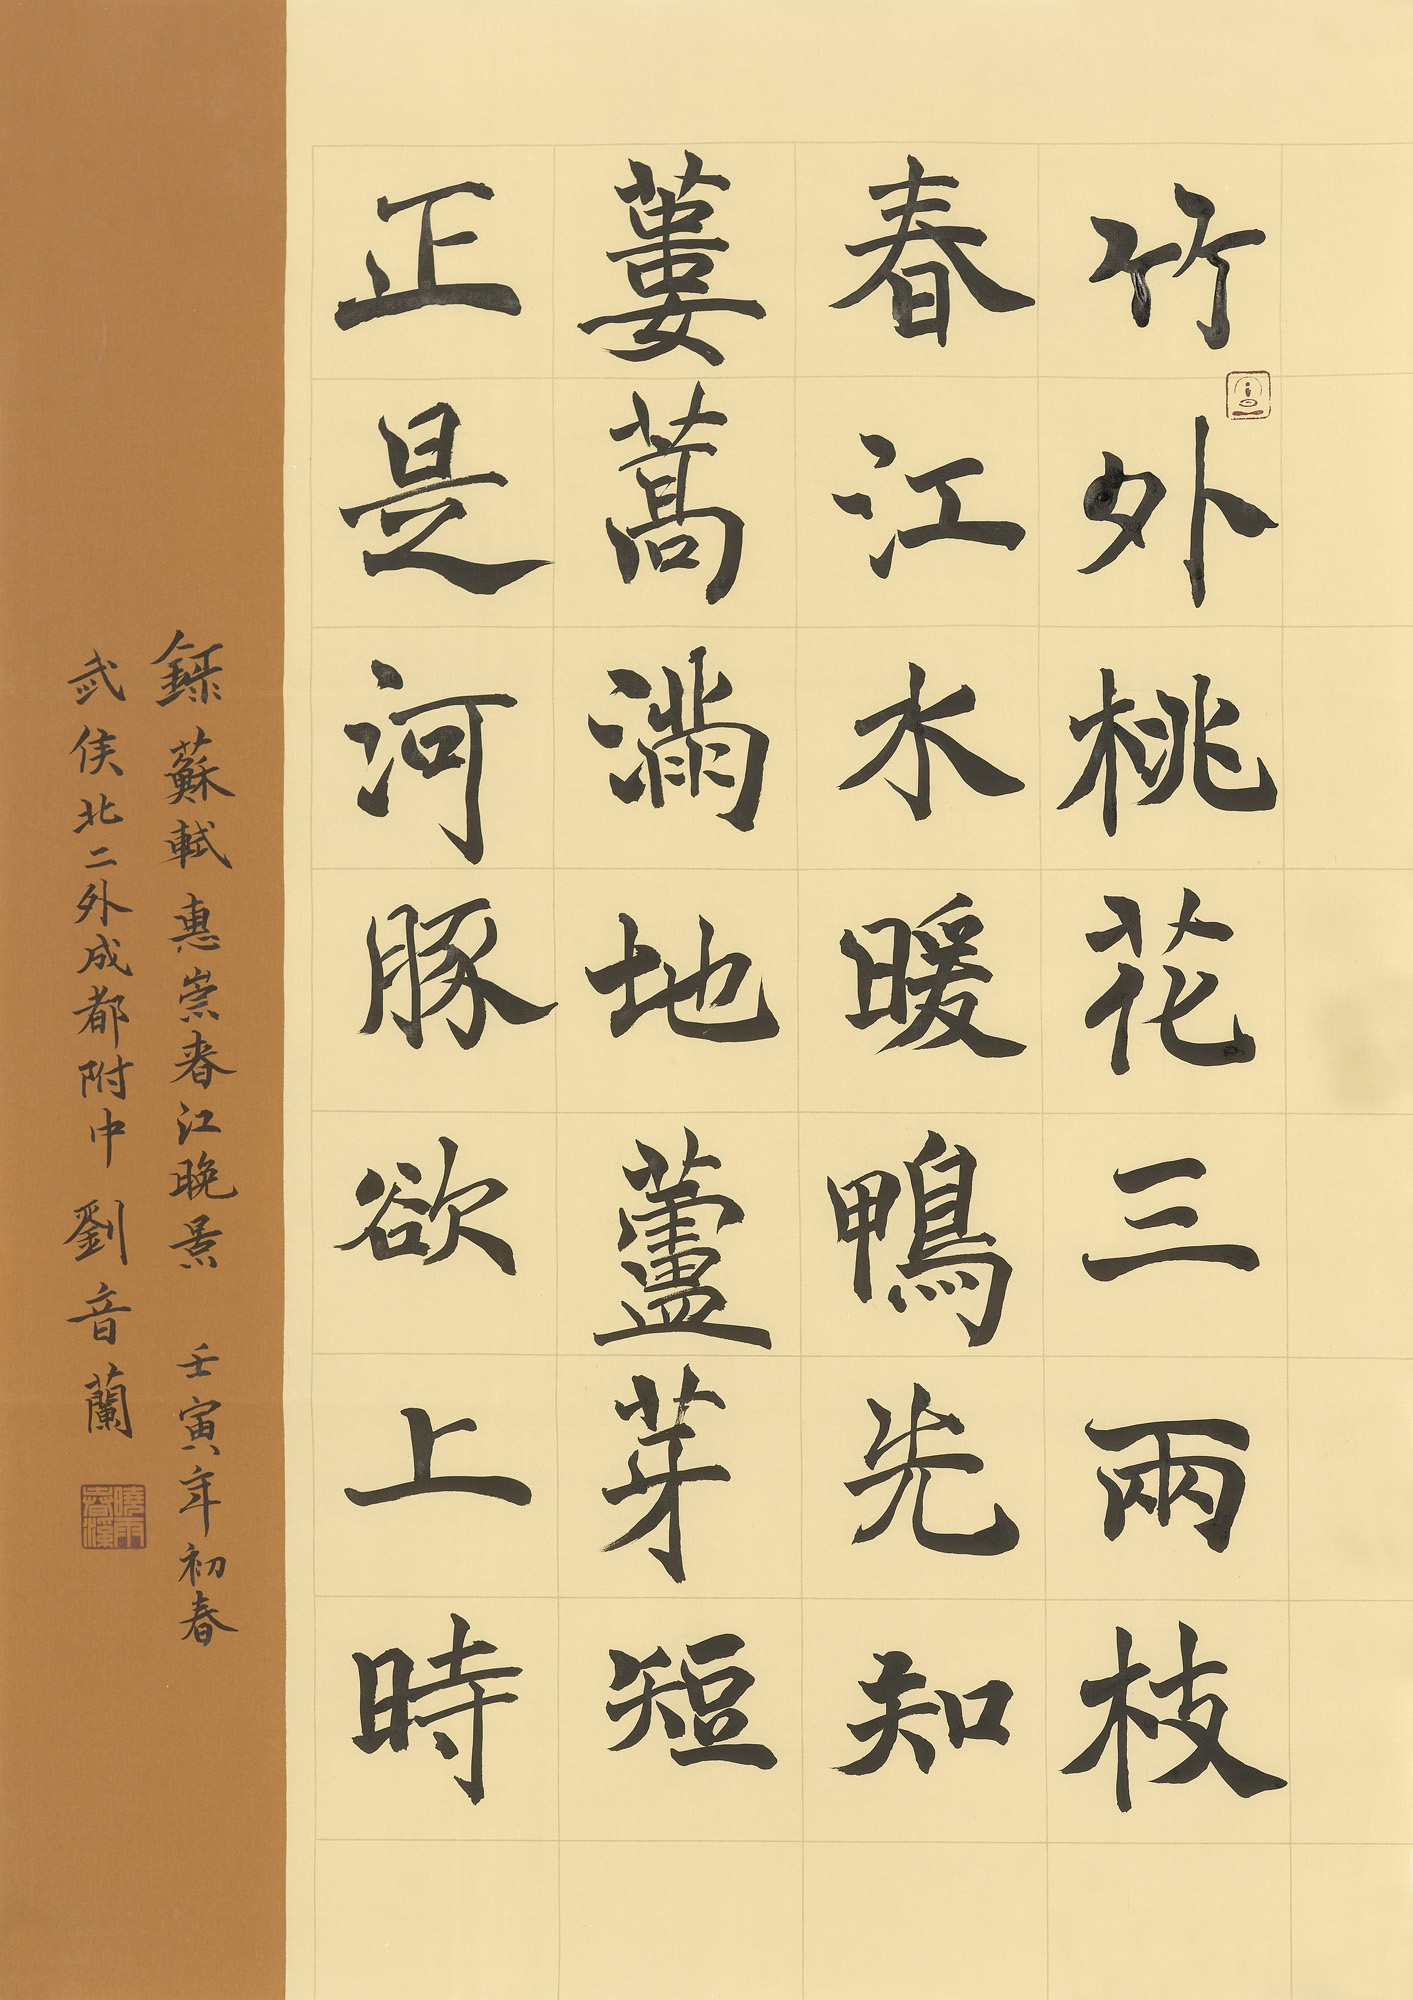 竹外桃花三兩枝
春江水暖鴨先知
蔞蒿滿地蘆芽短
正是河豚欲上時
錄蘇軾惠崇春江晚景 壬寅年初春
武侯北二外成都附中 劉音蘭
曉雨春溪